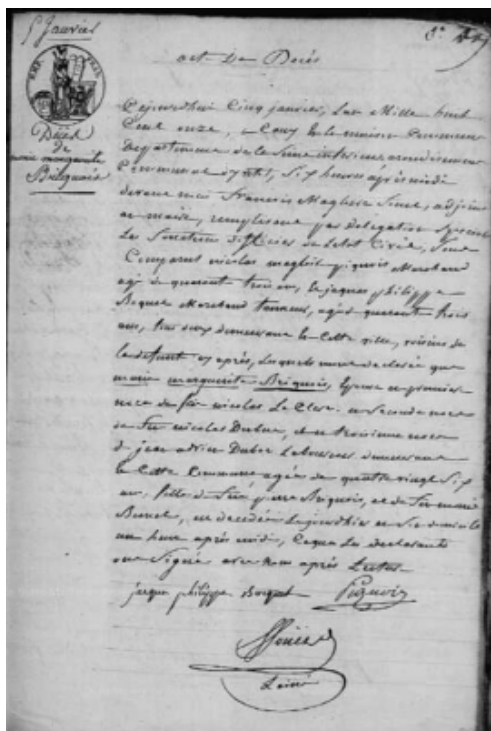 5 Janvier
act De Décès
Décès
de
marie marguerite
Briquois
Cejourdhui Cinq janvier, Lan Mille huit
Cent onze, en la maison Commune
Departement de la Seine inferieure arrondissement
Communal dyvetot, Six heures après midi
devant nous François Magloire adjoint
au maire, remplissant par délégation Spéciale
Les fonctions dofficier de Letat Civil, Sont
Comparus nicolas magloire pignois Marchand
agé de quarante trois ans, et jaques philippe
Boquet Marchand Tanneur, agé de quarante trois
ans, tous deux demeurant en Cette ville, voisins de
la defunte cy après, Lesquels nous ont declaré que
marie marguerite Briquois, Epouse en premiere
noce de feu nicolas Le Clerc. en Seconde noce
de feu nicolas Dubuc, et en troisieme noce
d jean adrien Dubos Laboureur demeurant
en Cette Commune agée de quatre vingt Six
ans, fille de feu pierre Briquois, et de feu marie
Burel, est decedée Lejourdhui en Son domicile
une heure après midi, Ce que Les declarants
ont Signé avec nous après Lecture
jaques philippe Boquet Pignois